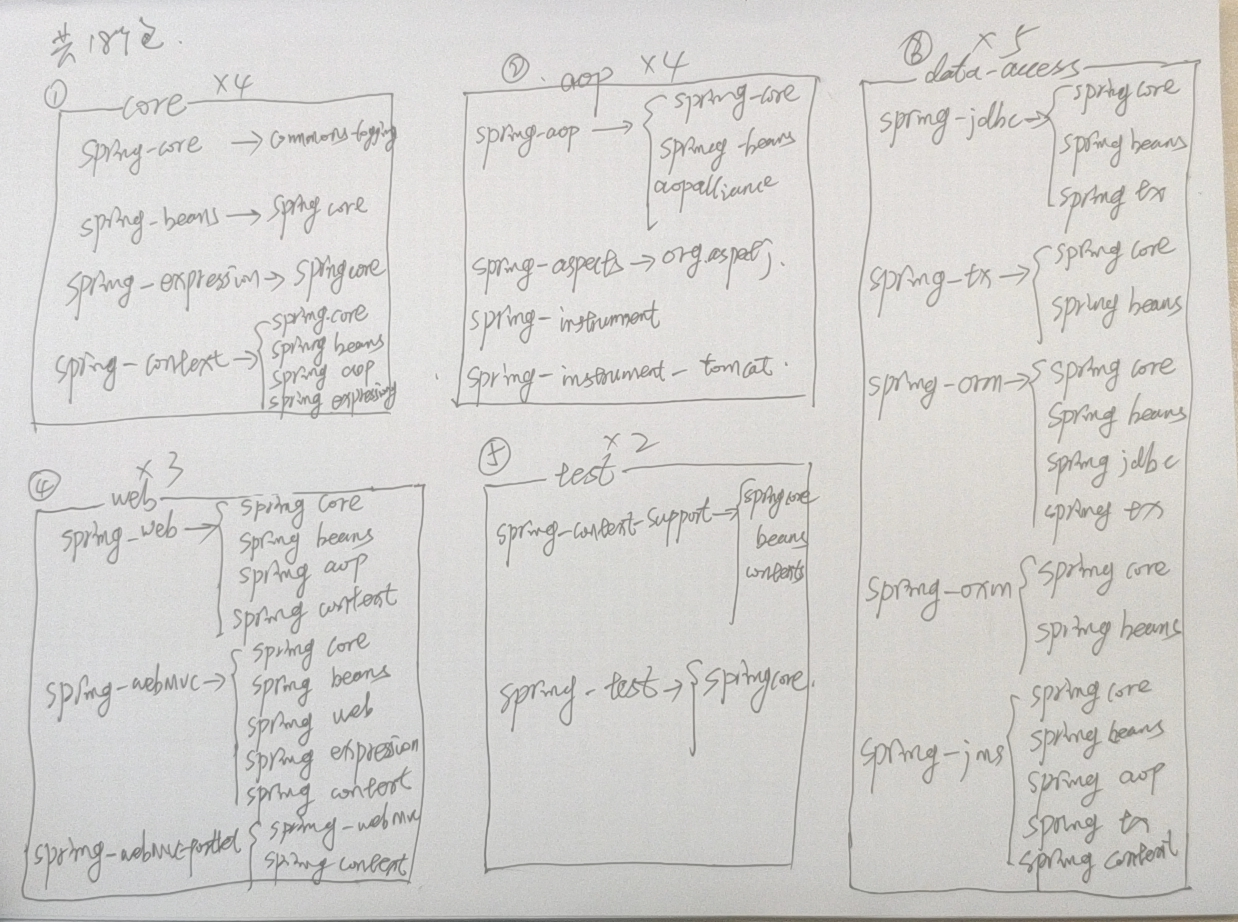 共18个包.
① core ×4
spring-core → commons-logging
spring-beans → spring core
spring-expression → spring core
spring-context → spring core
spring beans
spring aop
spring expression
② . aop ×4
spring-aop → spring-core
spring-beans
aopalliance
spring-aspects → org.aspectj.
spring-instrument
spring-instrument-tomcat.
③ data-access ×5
spring-jdbc → spring core
spring beans
spring tx
spring-tx → spring core
spring beans
spring-orm → spring core
spring beans
spring jdbc
spring tx
spring-oxm spring core
spring beans
spring-jms spring core
spring beans
spring aop
spring tx
spring context
④ web ×3
spring-web → spring core
spring beans
spring aop
spring context
spring-webmvc → spring core
spring beans
spring web
spring expression
spring context
spring-webmvc-portlet spring-webmvc
spring context
⑤ test ×2
spring-context-support → spring core
beans
contexts
spring-test → spring core.